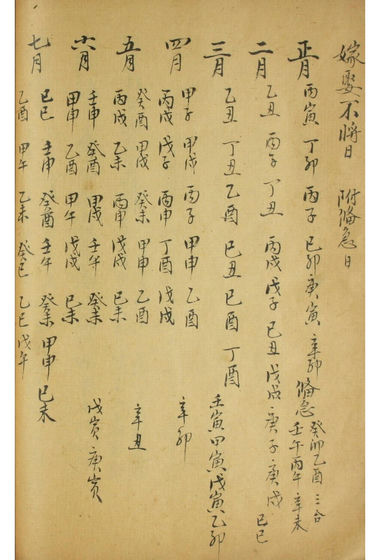 嫁娶不將日 附偹急日
正月 丙寅 丁卯 丙子 己卯 庚寅 辛卯 偹急 癸卯 乙酉 三合 壬午 丙午 辛未
二月 乙丑 丙子 丁丑 丙戌 戊子 己丑 戊戌 庚子 庚戌 己巳
三月 乙丑 丁丑 乙酉 己丑 己酉 丁酉 壬寅 甲寅 戊寅 乙卯
四月 甲子 甲戌 丙子 甲申 乙酉 辛卯
丙戌 戊子 丙申 丁酉 戊戌
五月 癸酉 甲戌 癸未 甲申 乙酉 辛丑
丙戌 乙未 丙申 戊戌 己未
六月 壬申 癸酉 甲戌 壬午 癸未 戊寅 庚寅
甲申 乙酉 甲午 戊戌 己未
七月 己巳 壬申 癸酉 壬午 癸未 甲申 己未
乙酉 甲午 乙未 癸巳 乙巳 戊午